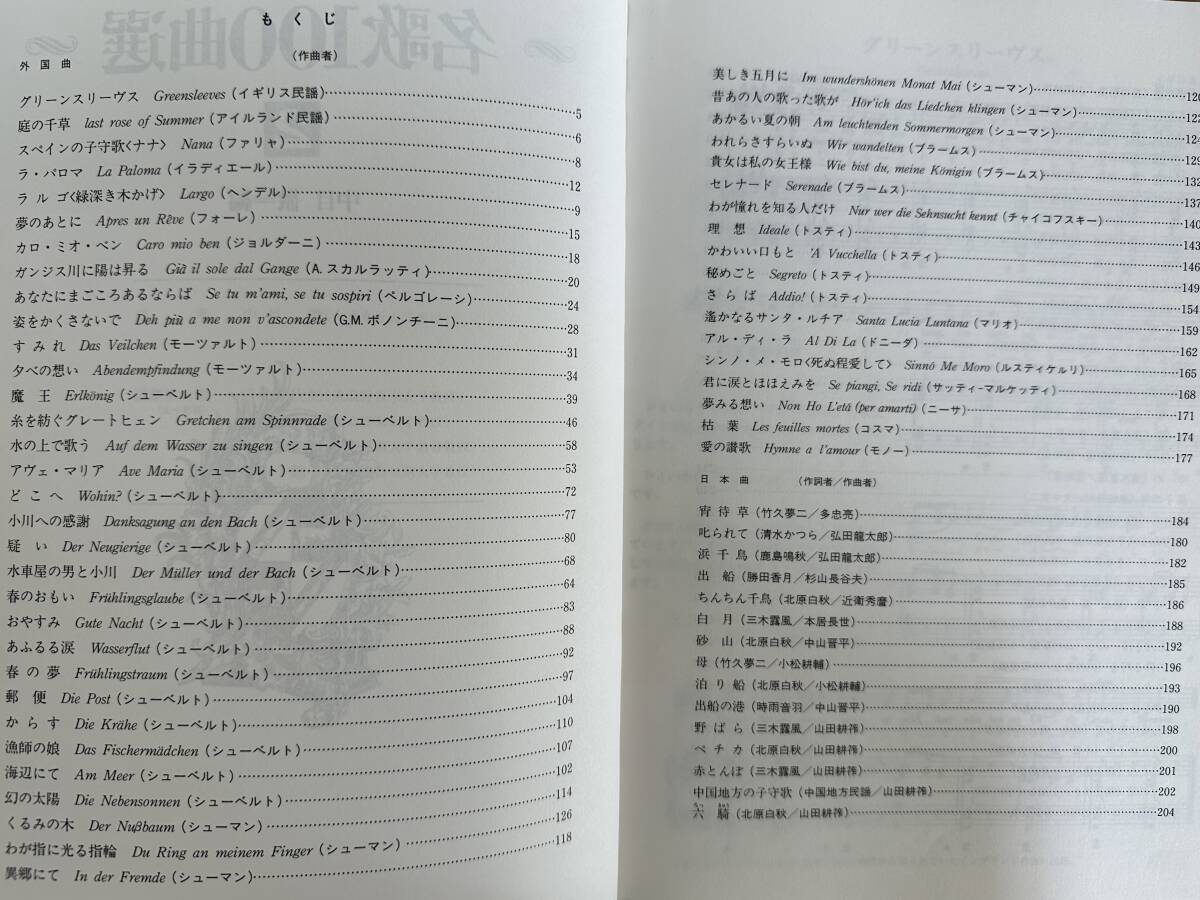 もくじ
外国曲 (作曲者)
グリーンスリーヴス Greensleeves (イギリス民謡)……5
庭の千草 last rose of Summer (アイルランド民謡)……6
スペインの子守歌〈ナナ〉 Nana (ファリャ)……8
ラ・パロマ La Paloma (イラディエール)……12
ラルゴ〈緑深き木かげ〉 Largo (ヘンデル)……9
夢のあとに Apres un Rêve (フォーレ)……15
カロ・ミオ・ベン Caro mio ben (ジョルダーニ)……18
ガンジス川に陽は昇る Già il sole dal Gange (A. スカルラッティ)……20
あなたにまごころあるならば Se tu m'ami, se tu sospiri (ペルゴレーシ)……24
姿をかくさないで Deh più a me non v'ascondete (G.M. ボノンチーニ)……28
すみれ Das Veilchen (モーツァルト)……31
夕べの想い Abendempfindung (モーツァルト)……34
魔王 Erlkönig (シューベルト)……39
糸を紡ぐグレートヒェン Gretchen am Spinnrade (シューベルト)……46
水の上で歌う Auf dem Wasser zu singen (シューベルト)……58
アヴェ・マリア Ave Maria (シューベルト)……53
どこへ Wohin? (シューベルト)……72
小川への感謝 Danksagung an den Bach (シューベルト)……77
疑い Der Neugierige (シューベルト)……80
水車屋の男と小川 Der Müller und der Bach (シューベルト)……68
春のおもい Frühlingsglaube (シューベルト)……64
おやすみ Gute Nacht (シューベルト)……83
あふるる涙 Wasserflut (シューベルト)……88
春の夢 Frühlingstraum (シューベルト)……92
郵便 Die Post (シューベルト)……97
からす Die Krähe (シューベルト)……104
漁師の娘 Das Fischermädchen (シューベルト)……110
海辺にて Am Meer (シューベルト)……107
幻の太陽 Die Nebensonnen (シューベルト)……102
くるみの木 Der Nußbaum (シューマン)……114
わが指に光る指輪 Du Ring an meinem Finger (シューマン)……126
異郷にて In der Fremde (シューマン)……118
美しき五月に Im wundershönen Monat Mai (シューマン)……120
昔あの人の歌った歌が Hör'ich das Liedchen klingen (シューマン)……123
あかるい夏の朝 Am leuchtenden Sommermorgen (シューマン)……124
われらさすらいぬ Wir wandelten (ブラームス)……129
貴女は私の女王様 Wie bist du, meine Königin (ブラームス)……132
セレナード Serenade (ブラームス)……137
わが憧れを知る人だけ Nur wer die Sehnsucht kennt (チャイコフスキー)……140
理想 Ideale (トスティ)……143
かわいい口もと 'A Vucchella (トスティ)……146
秘めごと Segreto (トスティ)……149
さらば Addio! (トスティ)……154
遙かなるサンタ・ルチア Santa Lucia Luntana (マリオ)……159
アル・ディ・ラ Al Di La (ドニーダ)……162
シンノ・メ・モロ〈死ぬ程愛して〉 Sinnó Me Moro (ルスティケルリ)……165
君に涙とほほえみを Se piangi, Se ridi (サッティ-マルケッティ)……168
夢みる想い Non Ho L'etá (per amarti) (ニーサ)……171
枯葉 Les feuilles mortes (コスマ)……174
愛の讃歌 Hymne a l'amour (モノー)……177
日本曲 (作詞者/作曲者)
宵待草 (竹久夢二/多忠亮)……184
叱られて (清水かつら/弘田龍太郎)……180
浜千鳥 (鹿島鳴秋/弘田龍太郎)……182
出船 (勝田香月/杉山長谷夫)……185
ちんちん千鳥 (北原白秋/近衛秀麿)……186
白月 (三木露風/本居長世)……188
砂山 (北原白秋/中山晋平)……192
母 (竹久夢二/小松耕輔)……196
泊り船 (北原白秋/小松耕輔)……193
出船の港 (時雨音羽/中山晋平)……190
野ばら (三木露風/山田耕筰)……198
ペチカ (北原白秋/山田耕筰)……200
赤とんぼ (三木露風/山田耕筰)……201
中国地方の子守歌 (中国地方民謡/山田耕筰)……202
六騎 (北原白秋/山田耕筰)……204